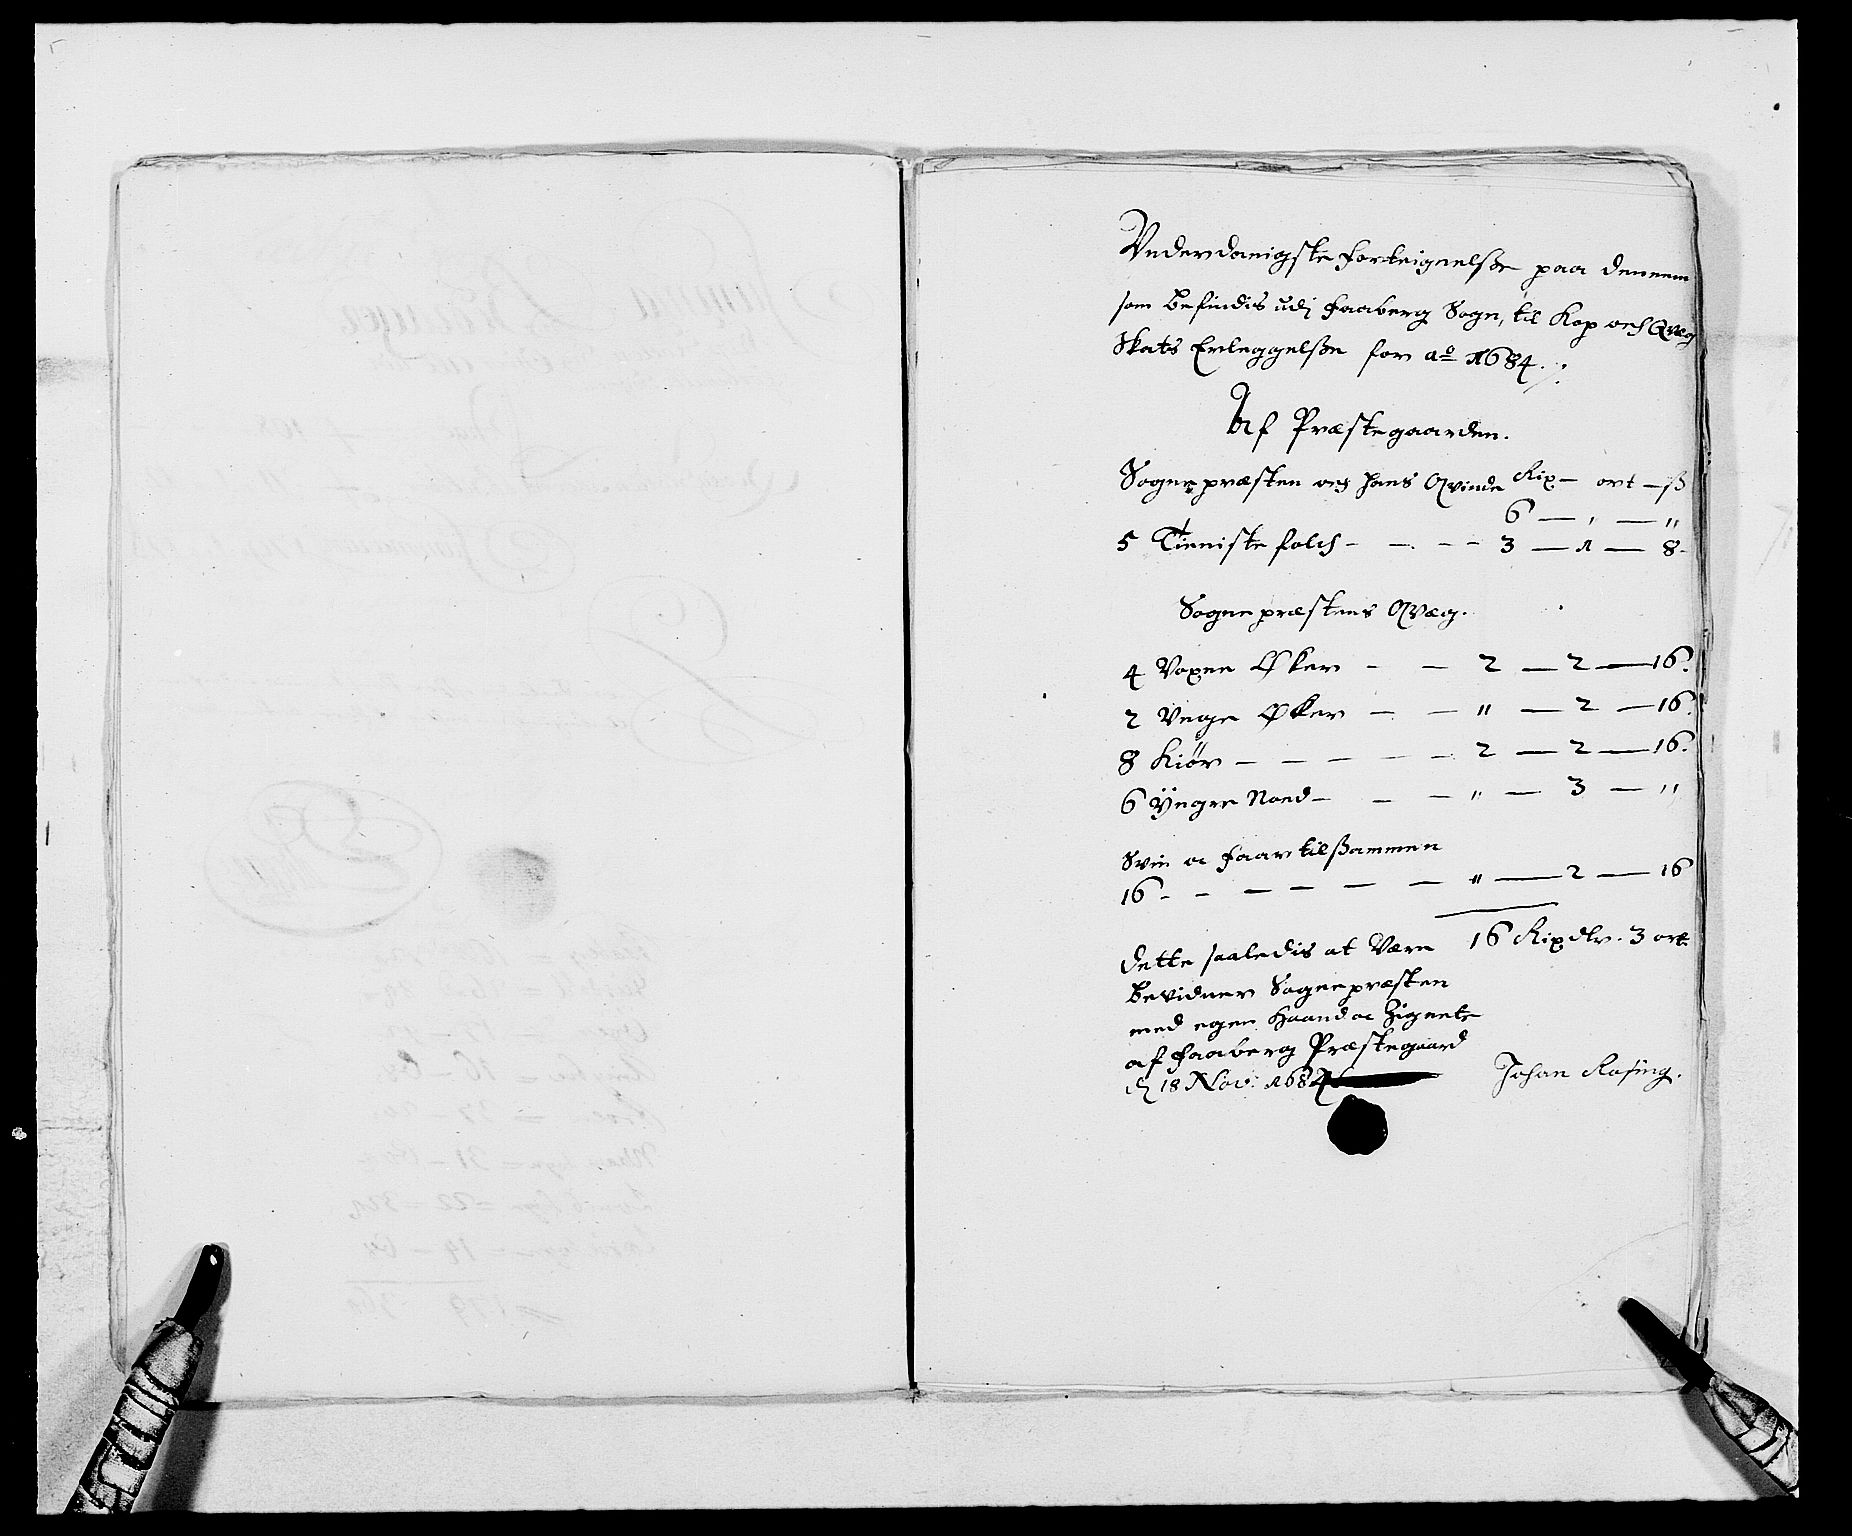 Vnderdanigste forteignelsse paa dennem
som befindis udj Faaberg Sogn, til Kop och Qvæg
Skats Erleggelsse for aō 1684.
Af Præstegaarden.
Sognepræsten och hans Qvinde Rix – ort – ß
6 — , — "
5 Tienistefolch – – – – 3 — 1 — 8 –
Sognepræstens Qvæg.
4 Voxne Øxer – – 2 — 2 — 16.
2 Vnge Øxer – – " — 2 — 16.
8 Kiør – – – – – – 2 — 2 — 16.
6 Yngre Noed – – – " — 3 — "
Svin oc Faar tilsammen
16 – – – – – – " — 2 — 16
16 Rixdlr. 3 ort
dette saaledis at Være
bevidner Sognepræsten
med egen Haand oc Zignete
af Faaberg Præstegaard
dj 18 Nov: 1684
Johan Rosing.